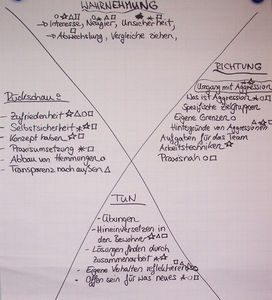 WAHRNEHMUNG
→ Interesse, Neugier, Unsicherheit,
→ Abwechslung, Vergleiche ziehen,
RICHTUNG
Umgang mit Aggression
- Was ist Aggression
- Spezifische Zielgruppen
- Eigene Grenzen
- Hintergründe von Aggressionen
- Aufgaben für das Team
- Arbeitstechniken
- Praxisnah
Rückschau
- Zufriedenheit
- Selbstsicherheit
- Konzept haben
- Praxisumsetzung
- Abbau von Hemmungen
- Transparenz nach außen
TUN
- Übungen
- Hineinversetzen in
den Bewohner
- Lösungen finden durch
Zusammenarbeit
- Eigene Verhalten reflektieren
- Offen sein für was neues